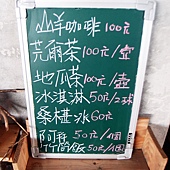 山羊咖啡100元
芫爾茶100元/壺
地瓜茶100元/壺
冰淇淋50元/2球
桑椹冰60元
阿 50元/個
竹筒飯50元/個